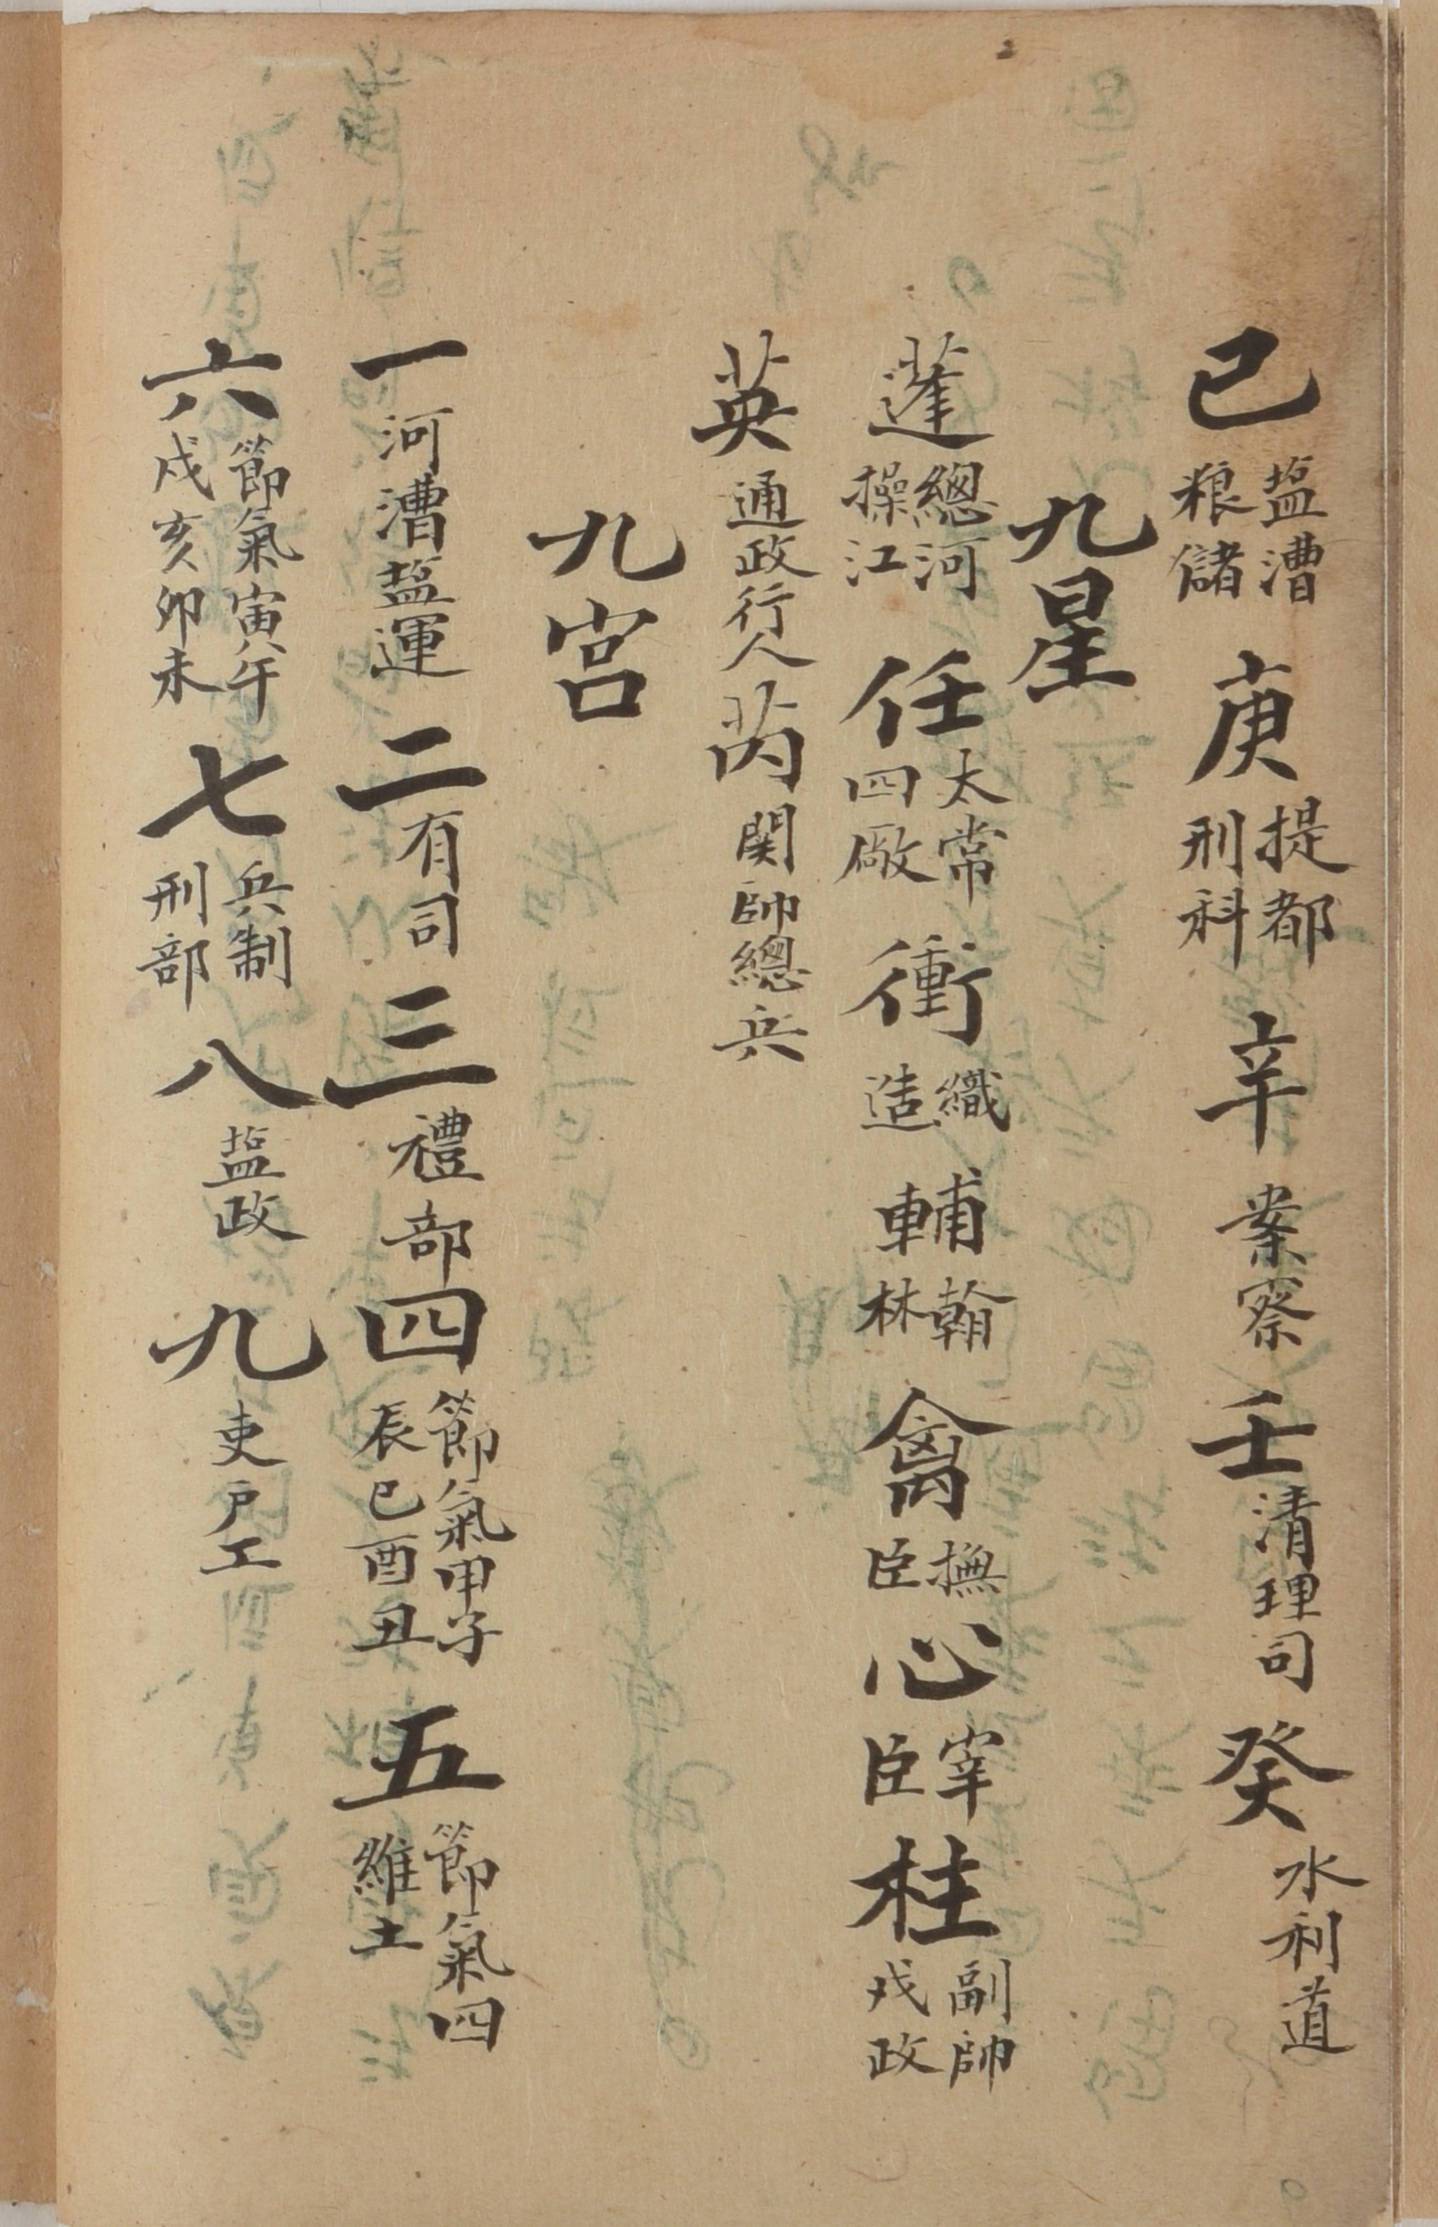 己塩漕粮儲庚提都刑科辛案察壬清理司癸水利道
九星
蓬總河操江任太常四廠衝織造輔翰林禽撫臣心宰臣柱副帥戎政
英通政行人芮関帥總兵
九宮
一河漕塩運二有司三禮部四節氣甲子辰巳酉丑五節氣四維土
六節氣寅午戍亥卯未七兵制刑部八塩政九吏戶工